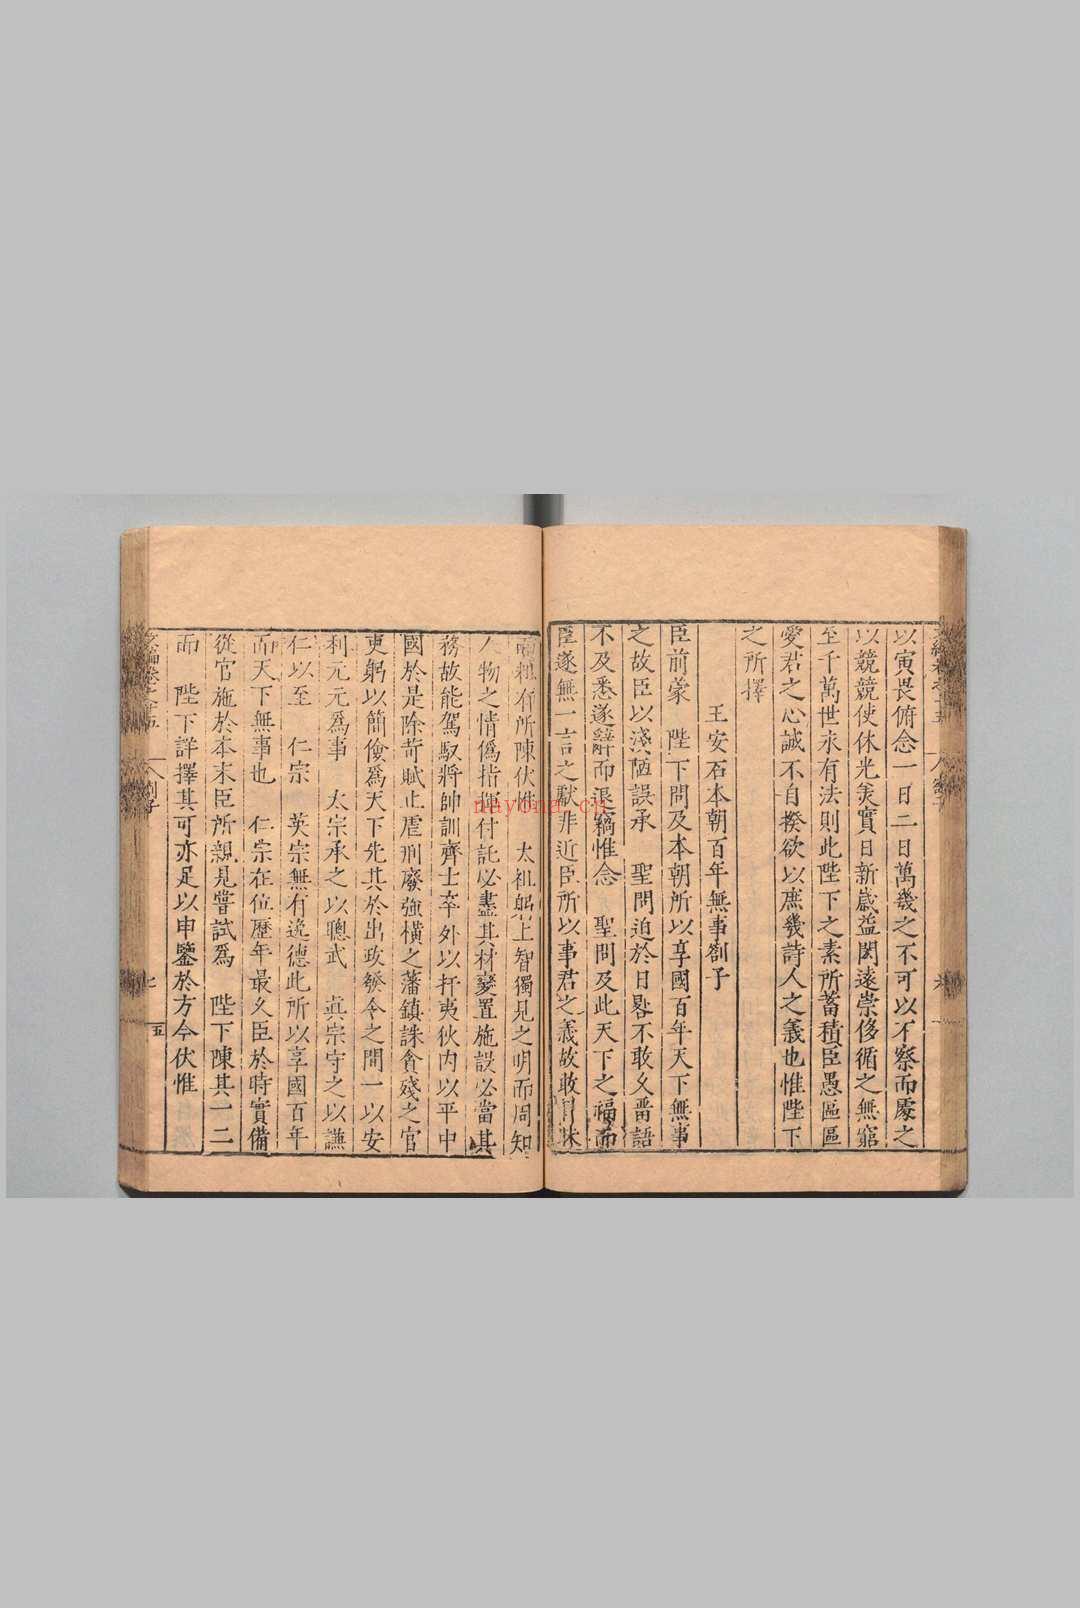 以寅畏俯念一日二日萬幾之不可以不察而處之
以兢兢使休光美實日新歲益閎遠崇侈循之無窮
至千萬世永有法則此陛下之素所蓄積臣愚區區
愛君之心誠不自揆欲以庶幾詩人之義也惟陛下
之所擇
王安石本朝百年無事劄子
臣前蒙 陛下問及本朝所以享國百年天下無事
之故臣以淺陋誤承 聖問迫於日晷不敢久畱語
不及悉遂辭而退竊惟念 聖問及此天下之福而
臣遂無一言之獻非近臣所以事君之義故敢冒昧
而粗有所陳伏惟 太祖躬上智獨見之明而周知
人物之情僞指揮付託必盡其材變置施設必當其
務故能駕馭將帥訓齊士卒外以扞夷狄内以平中
國於是除苛賦止虐刑廢強橫之藩鎮誅貪殘之官
吏躬以簡儉爲天下先其於出政發令之間一以安
利元元爲事 太宗承之以聰武 眞宗守之以謙
仁以至 仁宗 英宗無有逸德此所以享國百年
而天下無事也 仁宗在位歷年最久臣於時實備
從官施於本末臣所親見嘗試爲 陛下陳其一二
而 陛下詳擇其可亦足以申鑒於方今伏惟
劄子
七
五
nayona.cn